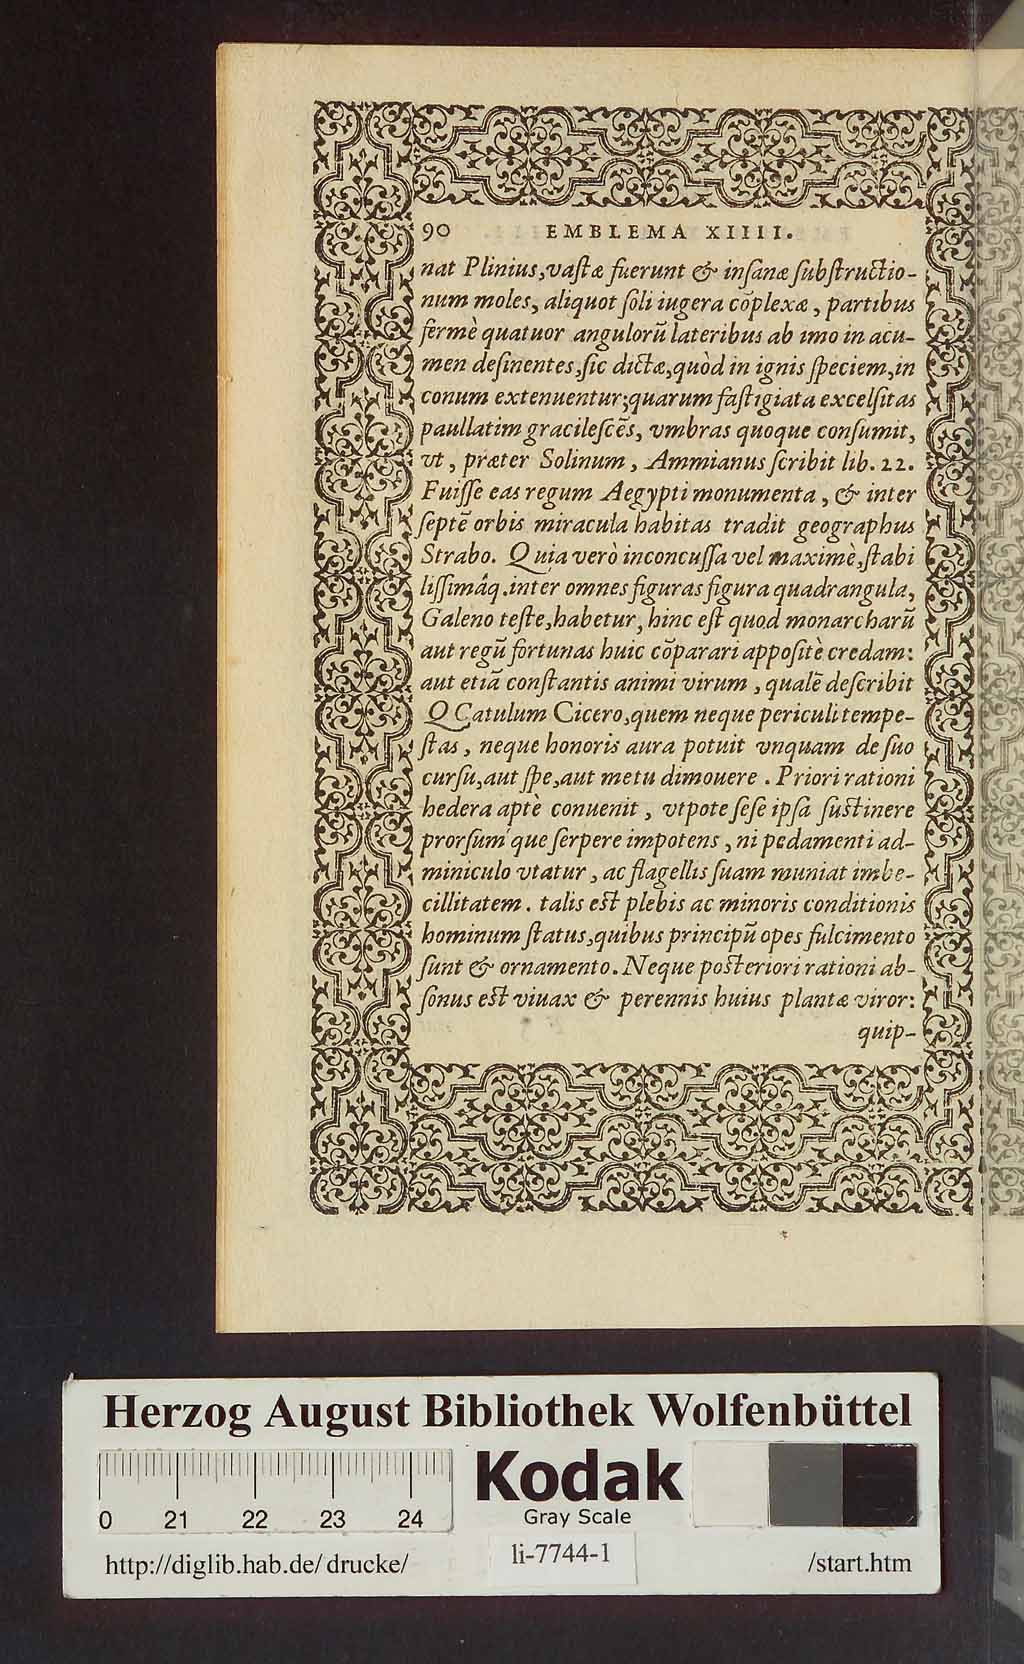 90 EMBLEMA XIIII.
nat Plinius, vaſtæ fuerunt & inſanæ ſubſtructio-
num moles, aliquot ſoli iugera cõplexæ, partibus
fermè quatuor angulorũ lateribus ab imo in acu-
men deſinentes, ſic dictæ, quòd in ignis ſpeciem, in
conum extenuentur; quarum faſtigiata excelſitas
paullatim gracileſcẽs, vmbras quoque conſumit,
vt, præter Solinum, Ammianus ſcribit lib. 22.
Fuiſſe eas regum Aegypti monumenta, & inter
ſeptẽ orbis miracula habitas tradit geographus
Strabo. Quia verò inconcuſſa vel maximè, ſtabi
liſſimáq. inter omnes figuras figura quadrangula,
Galeno teſte, habetur, hinc eſt quod monarcharũ
aut regũ fortunas huic cõparari appoſitè credam:
aut etiã conſtantis animi virum, qualẽ deſcribit
Q Catulum Cicero, quem neque periculi tempe-
ſtas, neque honoris aura potuit vnquam de ſuo
curſu, aut ſpe, aut metu dimouere. Priori rationi
hedera aptè conuenit, vtpote ſeſe ipſa ſuſtinere
prorſumq́ue ſerpere impotens, ni pedamenti ad-
miniculo vtatur, ac flagellis ſuam muniat imbe-
cillitatem. talis eſt plebis ac minoris conditionis
hominum ſtatus, quibus principũ opes fulcimento
ſunt & ornamento. Neque poſteriori rationi ab-
ſonus eſt viuax & perennis huius plantæ viror:
quip-
Herzog August Bibliothek Wolfenbüttel
0 21 22 23 24
Kodak
Gray Scale
http://diglib.hab.de/drucke/ li-7744-1 /start.htm